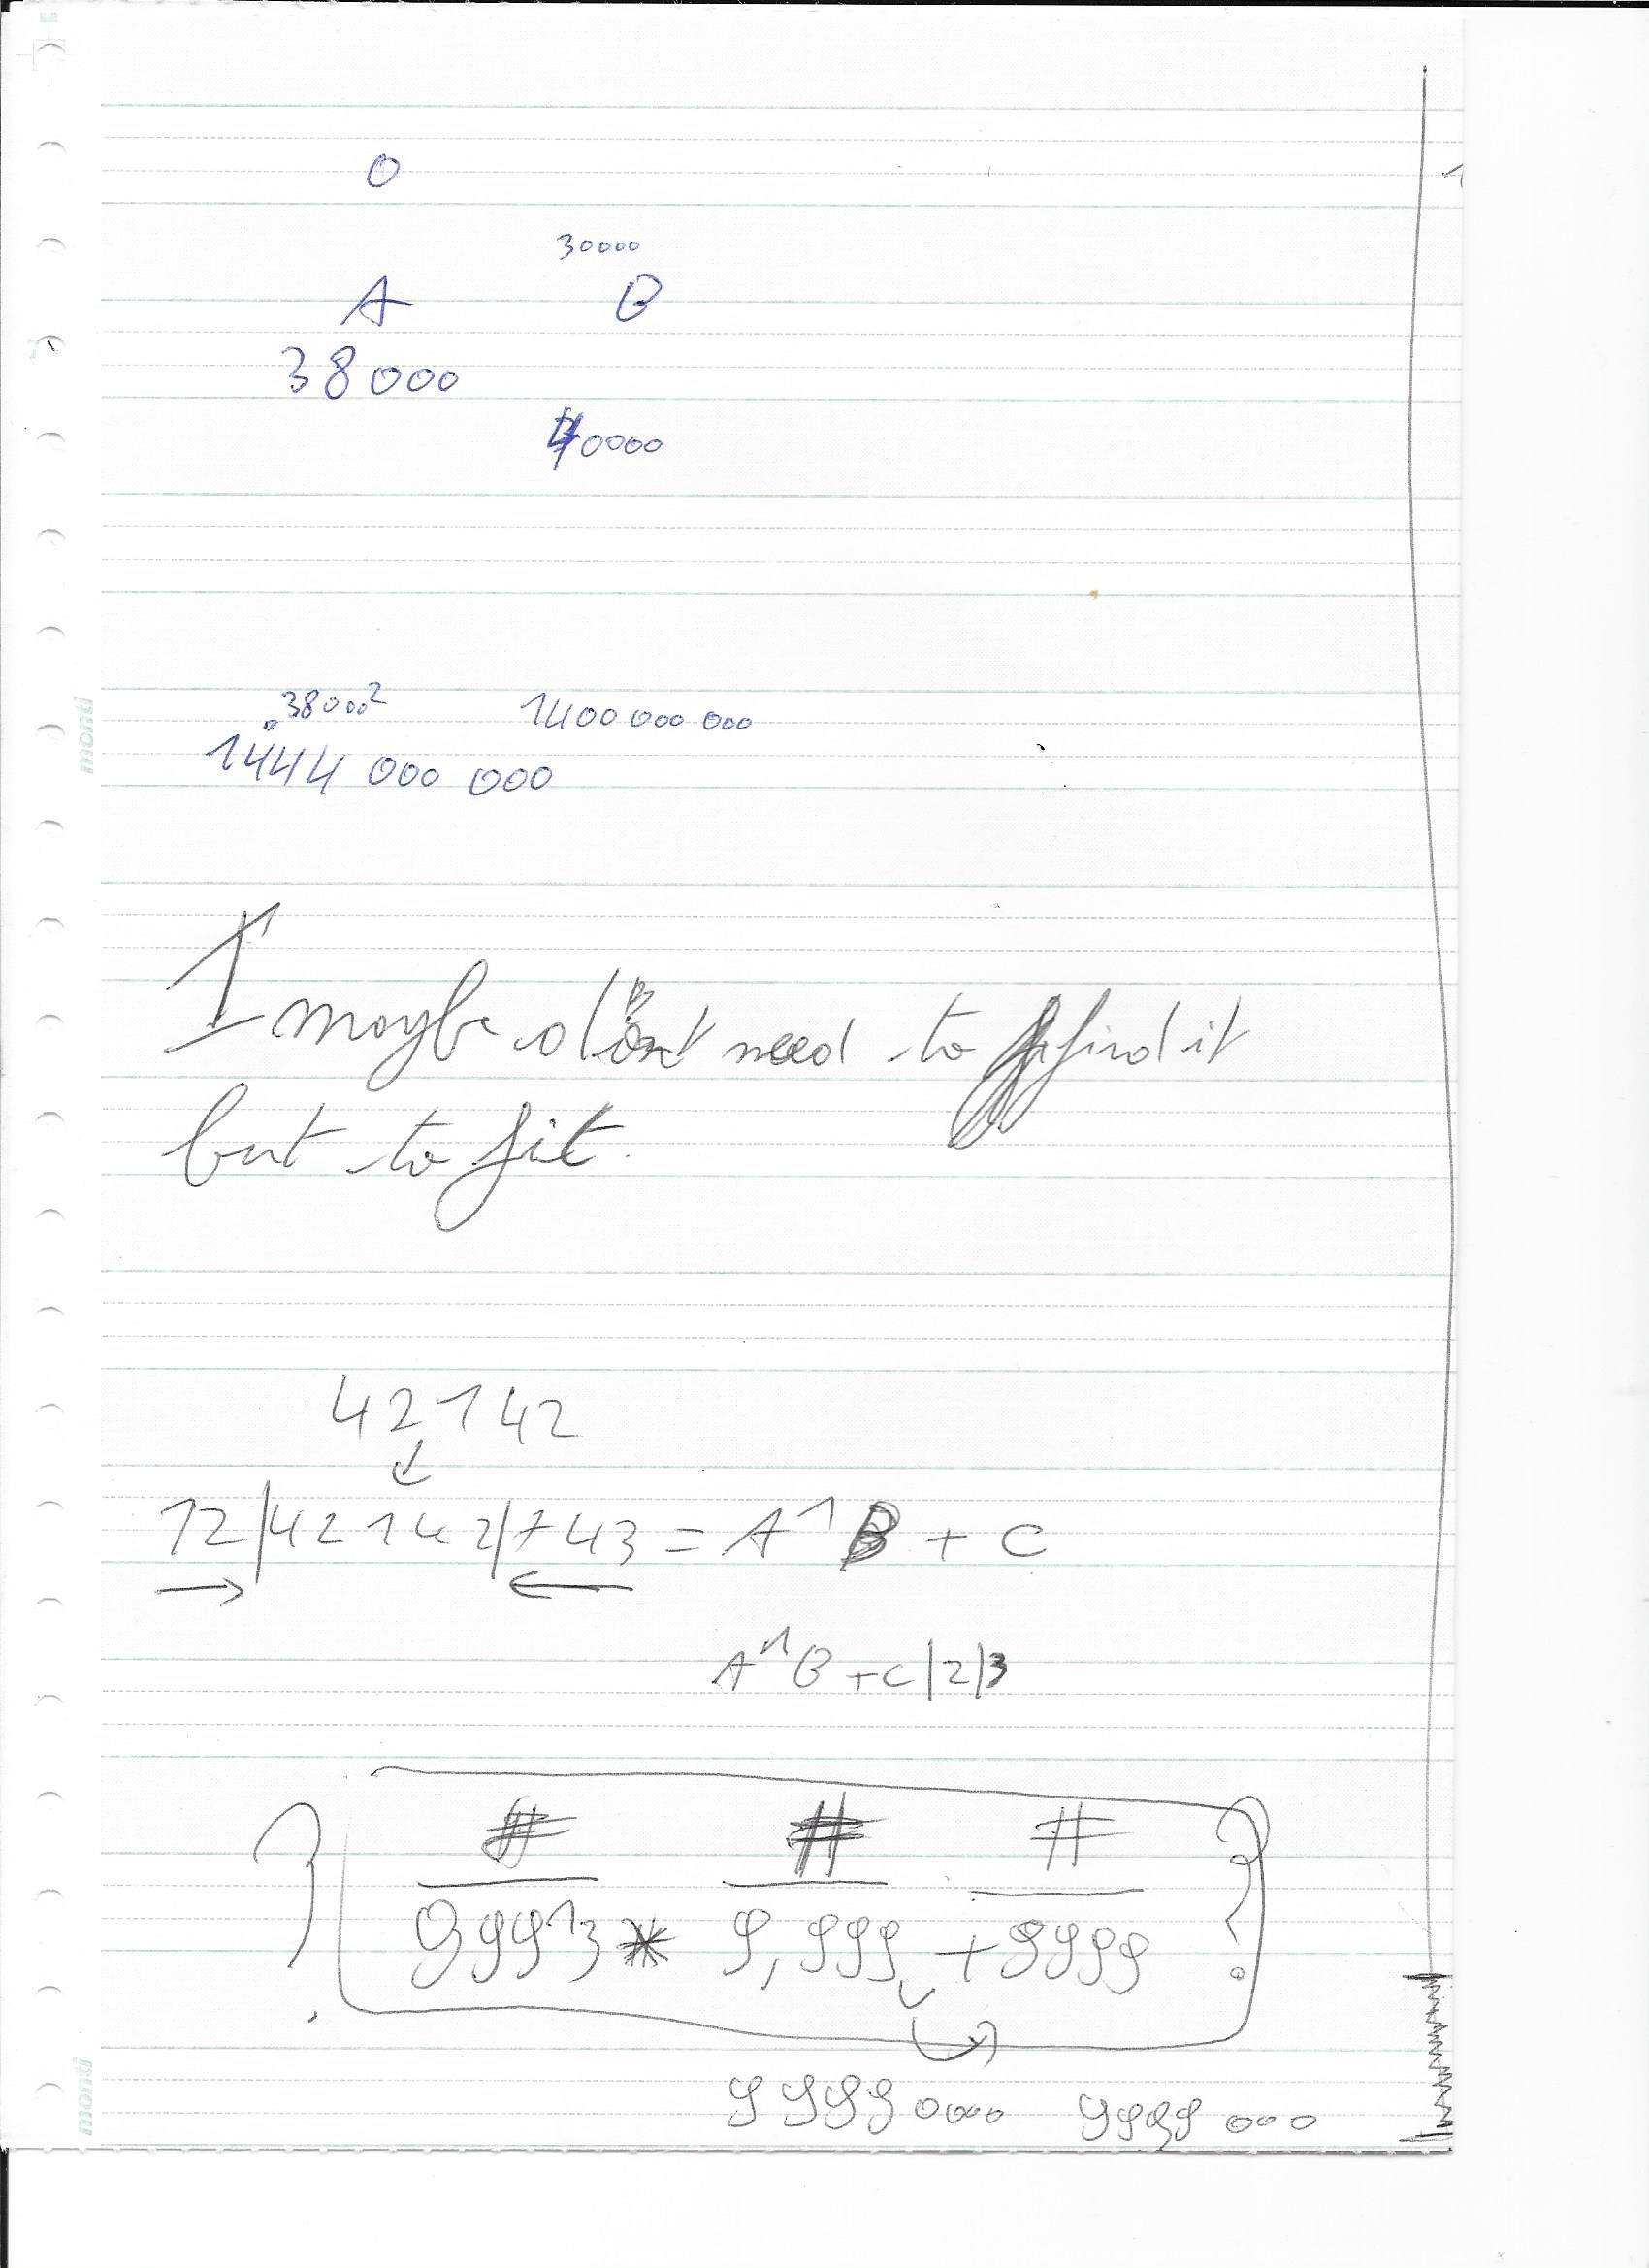 0
30000
A B
38000
40000
38000² 1400 000 000
1444 000 000
I maybe dont need to find it
but to fit.
42142
12|42142|743 = A^B + C
A^B + C|2|3
# # #
999^3 * 9,999 + 9999
9999 0000 9999 000
monti
monti